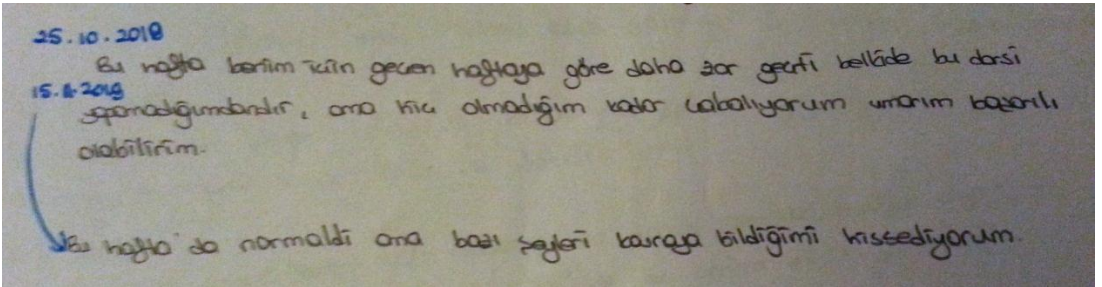 25.10.2018
Bu hafta benim için geçen haftaya göre daha zor geçti bellide bu dersi
15.11.2018
yapamadığımdandır, ama hiç olmadığım kadar çabalıyorum umarım başarılı
olabilirim.
Bu hafta da normaldi ama bazı şeyleri kavraya bildiğimi hissediyorum.